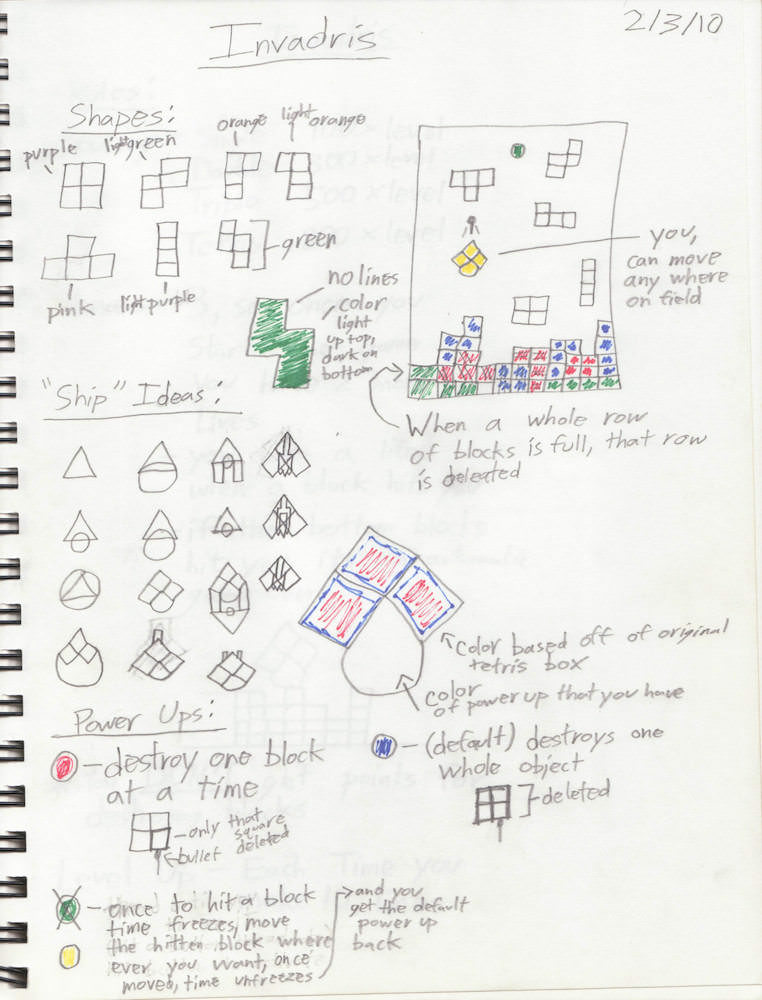 2/3/10
Invadris
Shapes:
purple
light green
orange
light orange
pink
light purple
green
no lines
color
light
up top,
dark on
bottom
you,
can move
any where
on field
When a whole row
of blocks is full, that row
is deleated
"Ship" Ideas:
Color based off of original
tetris box
color
of power up that you have
Power Ups:
– destroy one block
at a time
only that
square
deleted
bullet
– (default) destroys one
whole object
deleted
– once to hit a block
time freezes, move
the hitten block where
ever you want, once
moved, time unfreezes
and you
get the default
power up
back